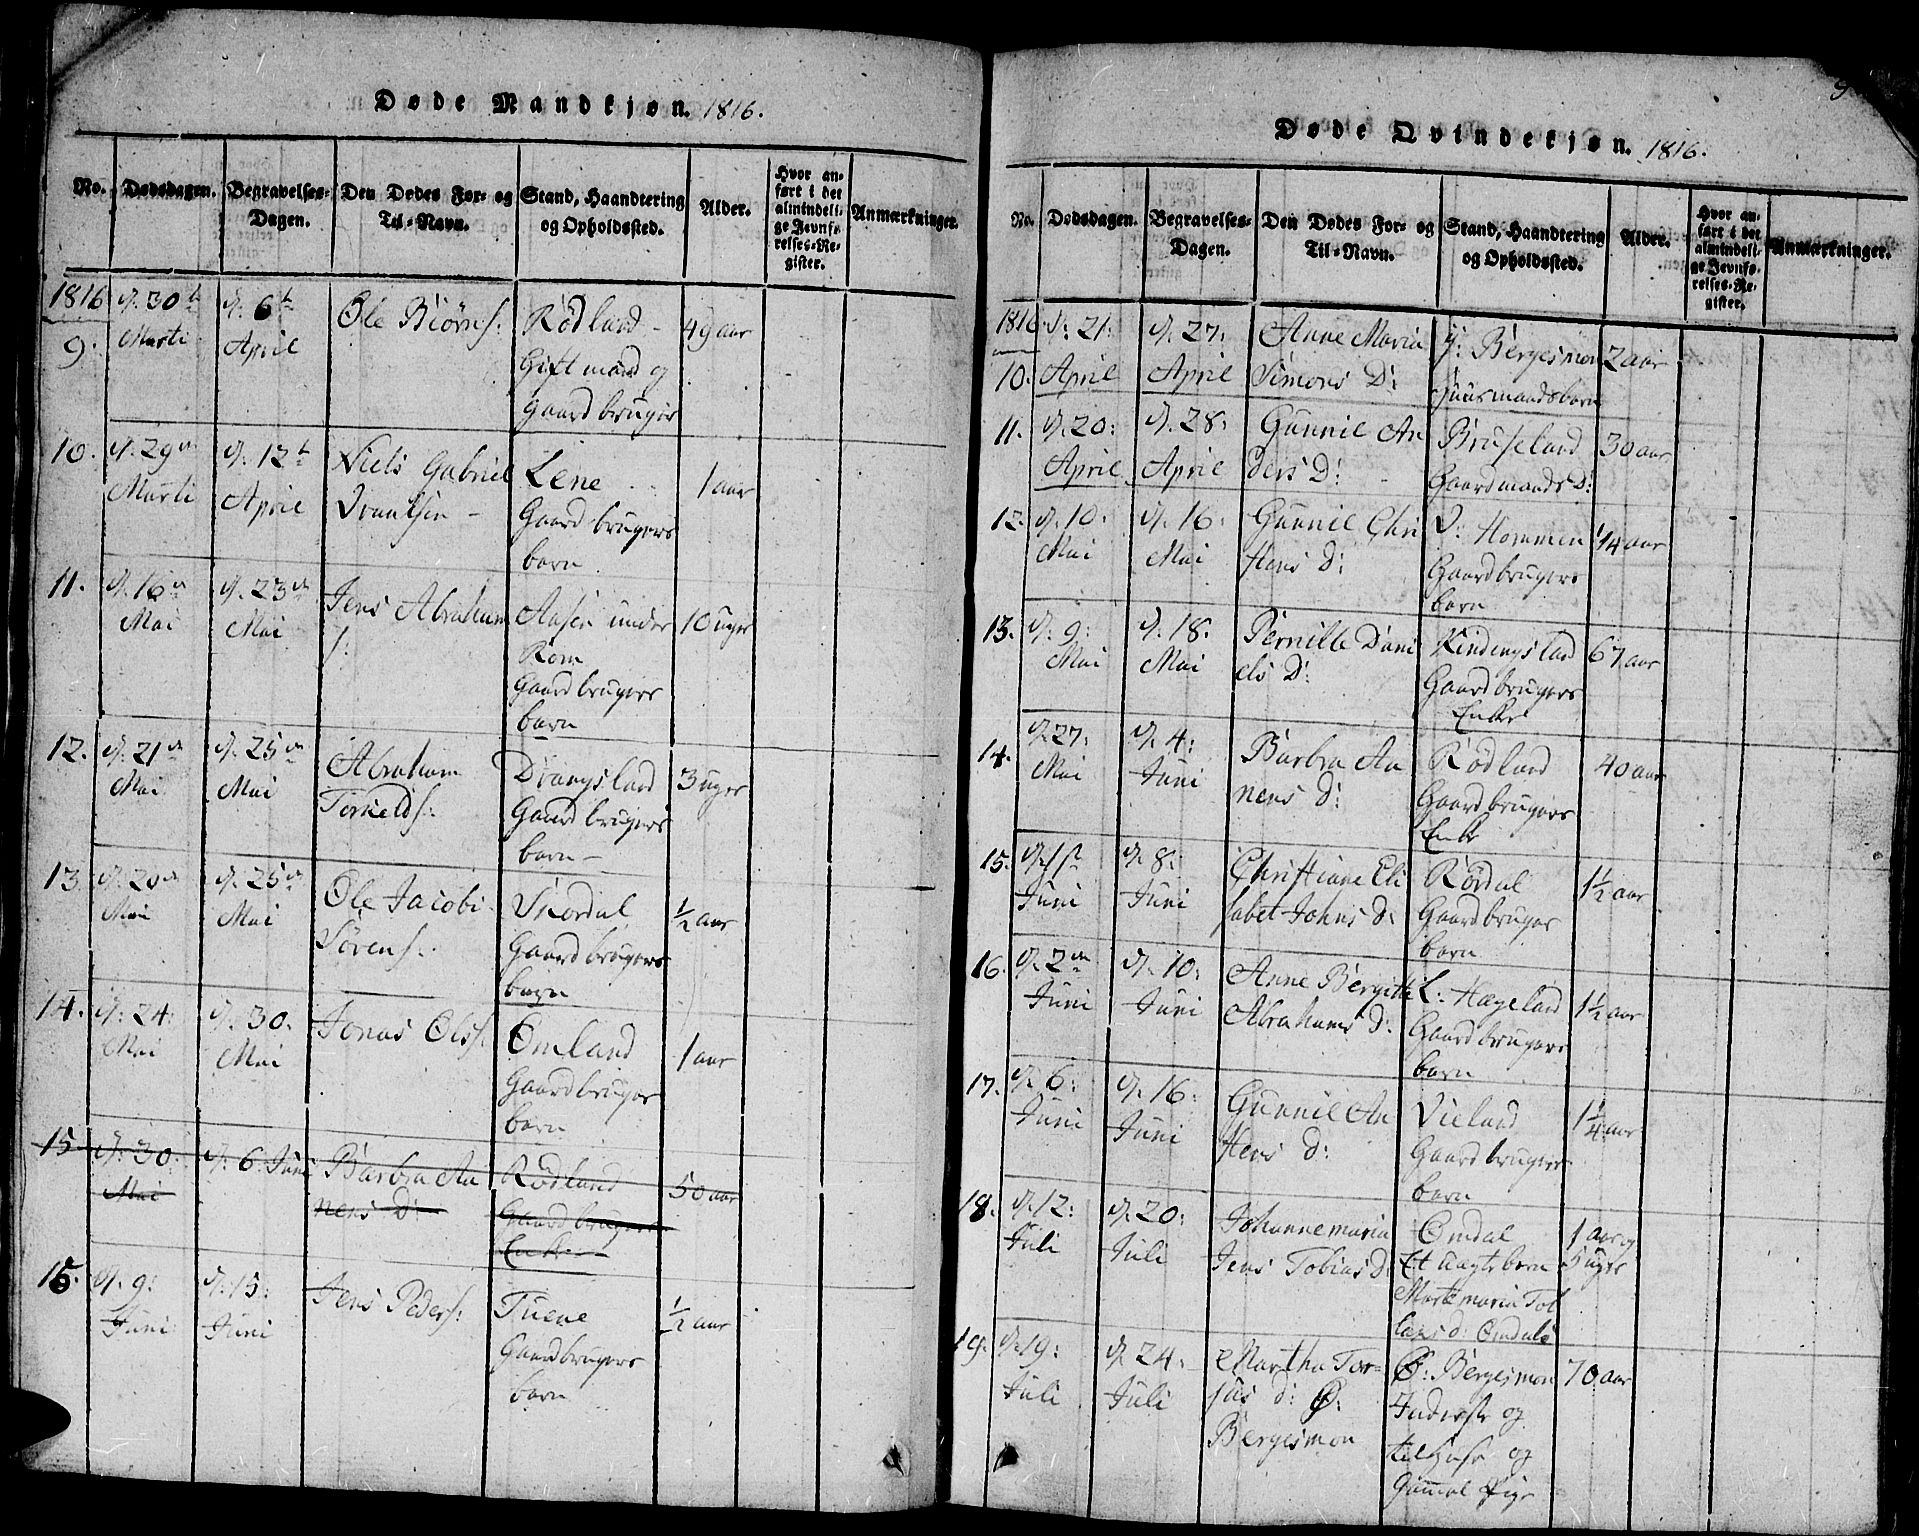 Døde Mandkjøn. 1816.
No. Dødsdagen. Begravelses-Dagen. Den Dødes For- og Til-Navn. Stand, Haandtering og Opholdssted. Alder. Hvor anført i det almindelige Jevnførelses-Register. Anmærkninger.
1816
9. d. 30t Marti
d. 6t April
Ole Biørns:
Rødland -
Gift mand og
gaardbruger
49 aar
10. d. 29n Marti
d. 12t April
Niels Gabriel
Lene
Gaardbrugers
barn
1 aar
11. d. 16n Mai
d. 23n Mai
Jens Abraham
s:
Aasen under
Rom
Gaardbrugers
barn
10 uger
12. d. 21n Mai
d. 25n Mai
Abraham
Torkelds:
Drangsland
Gaardbrugers
barn -
3 uger
13. d. 20n Mai
d. 25n Mai
Ole Jacob
Sørens:
Skordal
Gaardbrugers
barn
½ aar
14. d. 24: Mai
d. 30. Mai
Jonas Ols:
Omland
Gaardbruger
barn
1 aar
15 d. 30: Mai
d. 6 Juni
Barbra An
nens D:
Rødland
Gaardbrugers
Enke
50 aar
15. d. 9: Juni
d. 15: Juni
Jens Peders:
Tuene
Gaardbrugers
barn
½ aar
Døde Qvindekjøn. 1816.
No. Dødsdagen. Begravelses-Dagen. Den Dødes For- og Til-Navn. Stand, Haandtering og Opholdssted. Alder. Hvor anført i det almindelige Jevnførelses-Register. Anmærkninger.
1816
10. d. 21: April
d. 27: April
Anne Maria
Simons D:
Y: Bergesmon
Huusmandsbarn
2 aar
11. d. 20: April
d. 28: April
Gunnil An
ders D:
Bruseland
Gaardmands D:
30 aar
12. d. 10: Mai
d. 16: Mai
Gunnil Chri
stens D:
Hommen
Gaardbrugers
barn
14 aar
13. d. 9: Mai
d. 18. Mai
Pernille Dani
els D:
Kindingsland
Gaardbrugers
Enke
67 aar
14. d. 27: Mai
d. 4: Juni
Barbra An
nens D:
Rødland
Gaardbrugers
Enke
40 aar
15. d. 1st Juni
d. 8: Juni
Christiane Eli
sabet Johns D:
Rørdal
Gaardbruger
barn
1½ aar
16. d. 2den Juni
d. 10: Juni
Anne Bergitte
Abrahams D:
L: Hægeland
Gaardbrugers
barn
1½ aar
17. d. 6: Juni
d. 16: Juni
Gunnil An
stens D:
Vieland
Gaardbrugers
barn
1¼ aar
18. d. 12: Juli
d. 20: Juli
Johannemaria
Jens Tobias D:
Omdal
Et uægtebarn
Martemaria Tob
iasd: Omdal
1 aar og
5 uger
19. d. 19: Juli
d. 24: Juli
Martha Tor-
jus d: Ø:
Bergesmon
Ø: Bergesmon
Inderste og
tilhuse og
Gammel Pige
70 aar